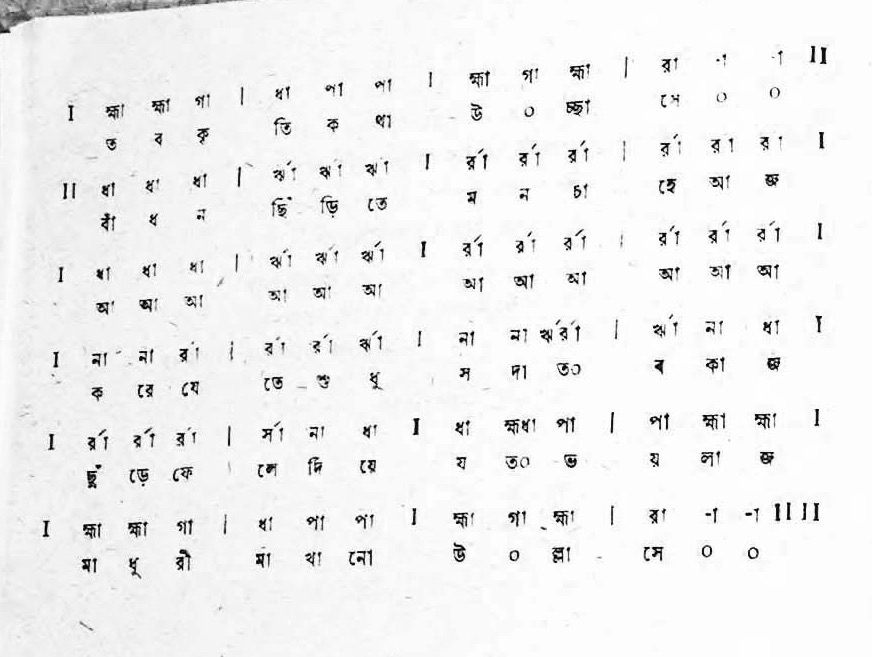 I হ্মা হ্মা গা | ধা পা পা I হ্মা গা হ্মা | রা -া -া II
ত ব কৃ তি ক থা উ ০ চ্ছা সে ০ ০
II ধা ধা ধা | র্ঋা র্ঋা র্ঋা I র্রা র্রা র্রা | র্রা রা রা I
বাঁ ধ ন ছিঁ ড়ি তে ম ন চা হে আ জ
I ধা ধা ধা | র্ঋা র্ঋা র্ঋা I র্রা র্রা র্রা | র্রা র্রা র্রা I
আ আ আ আ আ আ আ আ আ আ আ আ
I না না র্রা | র্রা র্রা র্ঋা I না না র্ঋর্রা | র্ঋা না ধা I
ক রে যে তে শু ধু স দা ত০ ব কা জ
I র্রা র্রা র্রা | র্সা না ধা I ধা হ্মধা পা | পা হ্মা হ্মা I
ছুঁ ড়ে ফে লে দি য়ে য ত০ ভ য় লা জ
I হ্মা হ্মা গা | ধা পা পা I হ্মা গা হ্মা | রা -া -া II II
মা ধু রী মা খা নো উ ০ ল্লা সে ০ ০